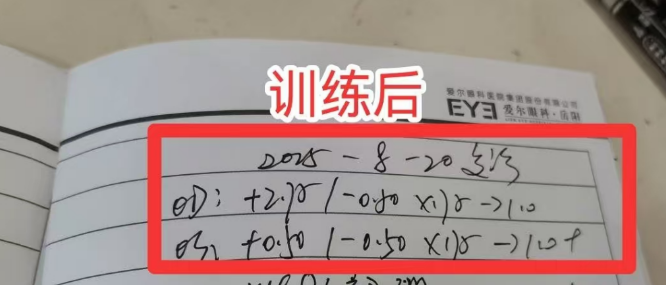 训练后
爱尔眼科医院集团股份有限公司
EYE 爱尔眼科·岳阳
2025-8-20
OD: +2.75/-0.50×175→1.0
OS: +0.50/-0.50×175→1.0+